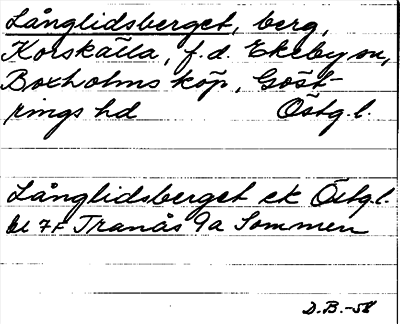 Långlidsberget, berg,
Korskälla, f.d. Ekeby sn,
Boxholms köp, Göst-
rings hd Östg.l.
Långlidsberget ek Östg.l.
bl 7F Tranås 9a Sommen
D.B.-58